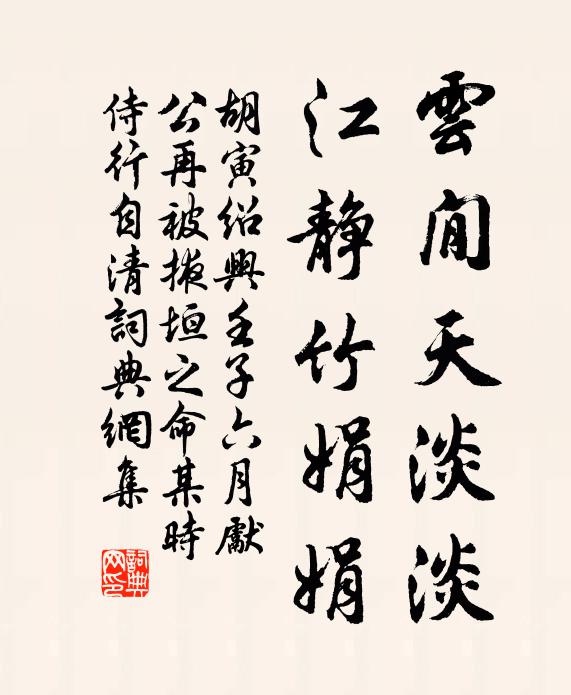 雲閒天淡淡
江静竹娟娟
胡寅紹興壬子六月獻
公再被掖垣之命某時
侍行自清詞典網集
詞典网印